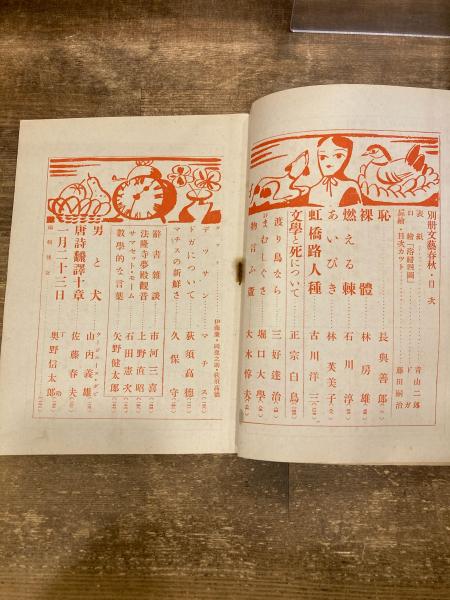 別册文藝春秋・目次
表紙 青山二郎
口繪「浴後四圖」 ドガ
扉繪・目次カツト 藤田嗣治
恥 長與善郎
裸體 林房雄
燃える棘 石川淳
あいびき 林芙美子
虹橋路人種 古川洋三
文學と死について 正宗白鳥
渡り鳥なら 三好達治
おまむしぐさ 堀口大學
物言ふ 大木惇夫
デツサン マチス
ドガについて 荻須高德
マチスの新鮮さ 久保守
辭書雜談 市河三喜
法隆寺夢殿觀音 上野直昭
サマセット・モーム 石田憲次
數學的な言葉 矢野健太郎
男と犬 山内義雄
唐詩飜譯十章 佐藤春夫
一月二十三日 奥野信太郎
編輯後記